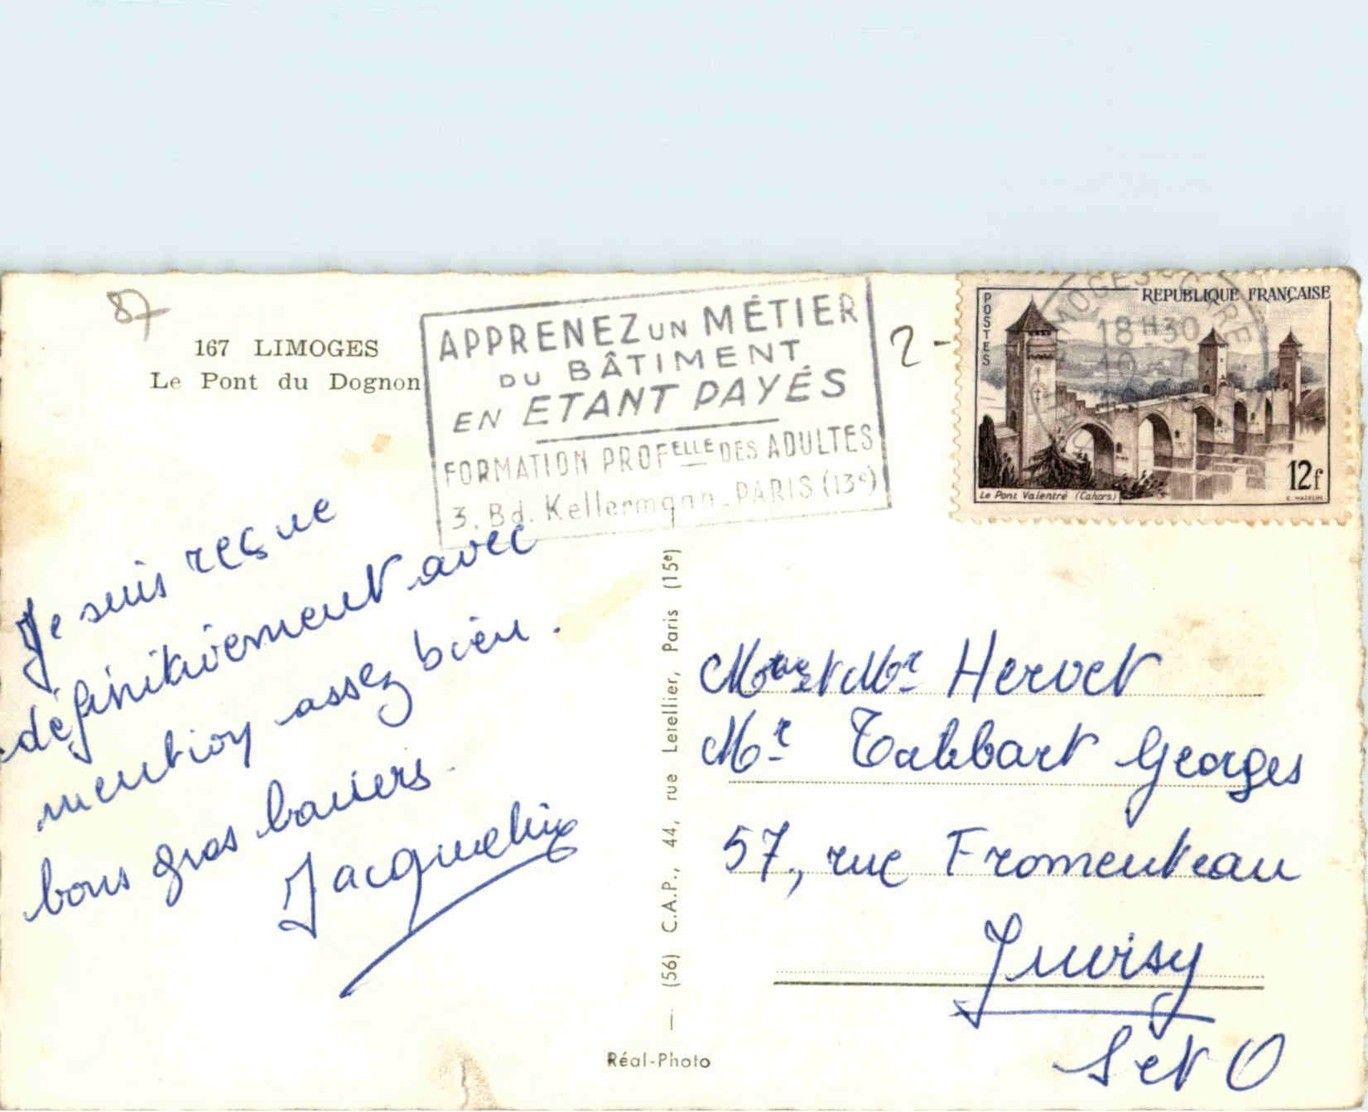 87
167 LIMOGES
Le Pont du Dognon
APPRENEZ UN MÉTIER
DU BÂTIMENT
EN ETANT PAYÉS
FORMATION PROFELLE DES ADULTES
3, Bd. Kellermann. PARIS (13e)
2 -
POSTES
REPUBLIQUE FRANÇAISE
18H30
12f
Le Pont Valentré (Cahors)
Je suis reçue
définitivement avec
mention assez bien.
bons gros baisers.
Jacqueline
(56) C.A.P., 44, rue Letellier, Paris (15e)
Réal-Photo
et Mr Hervet
Mr Tabbart Georges
57, rue Fromenteau
Juvisy
S et O